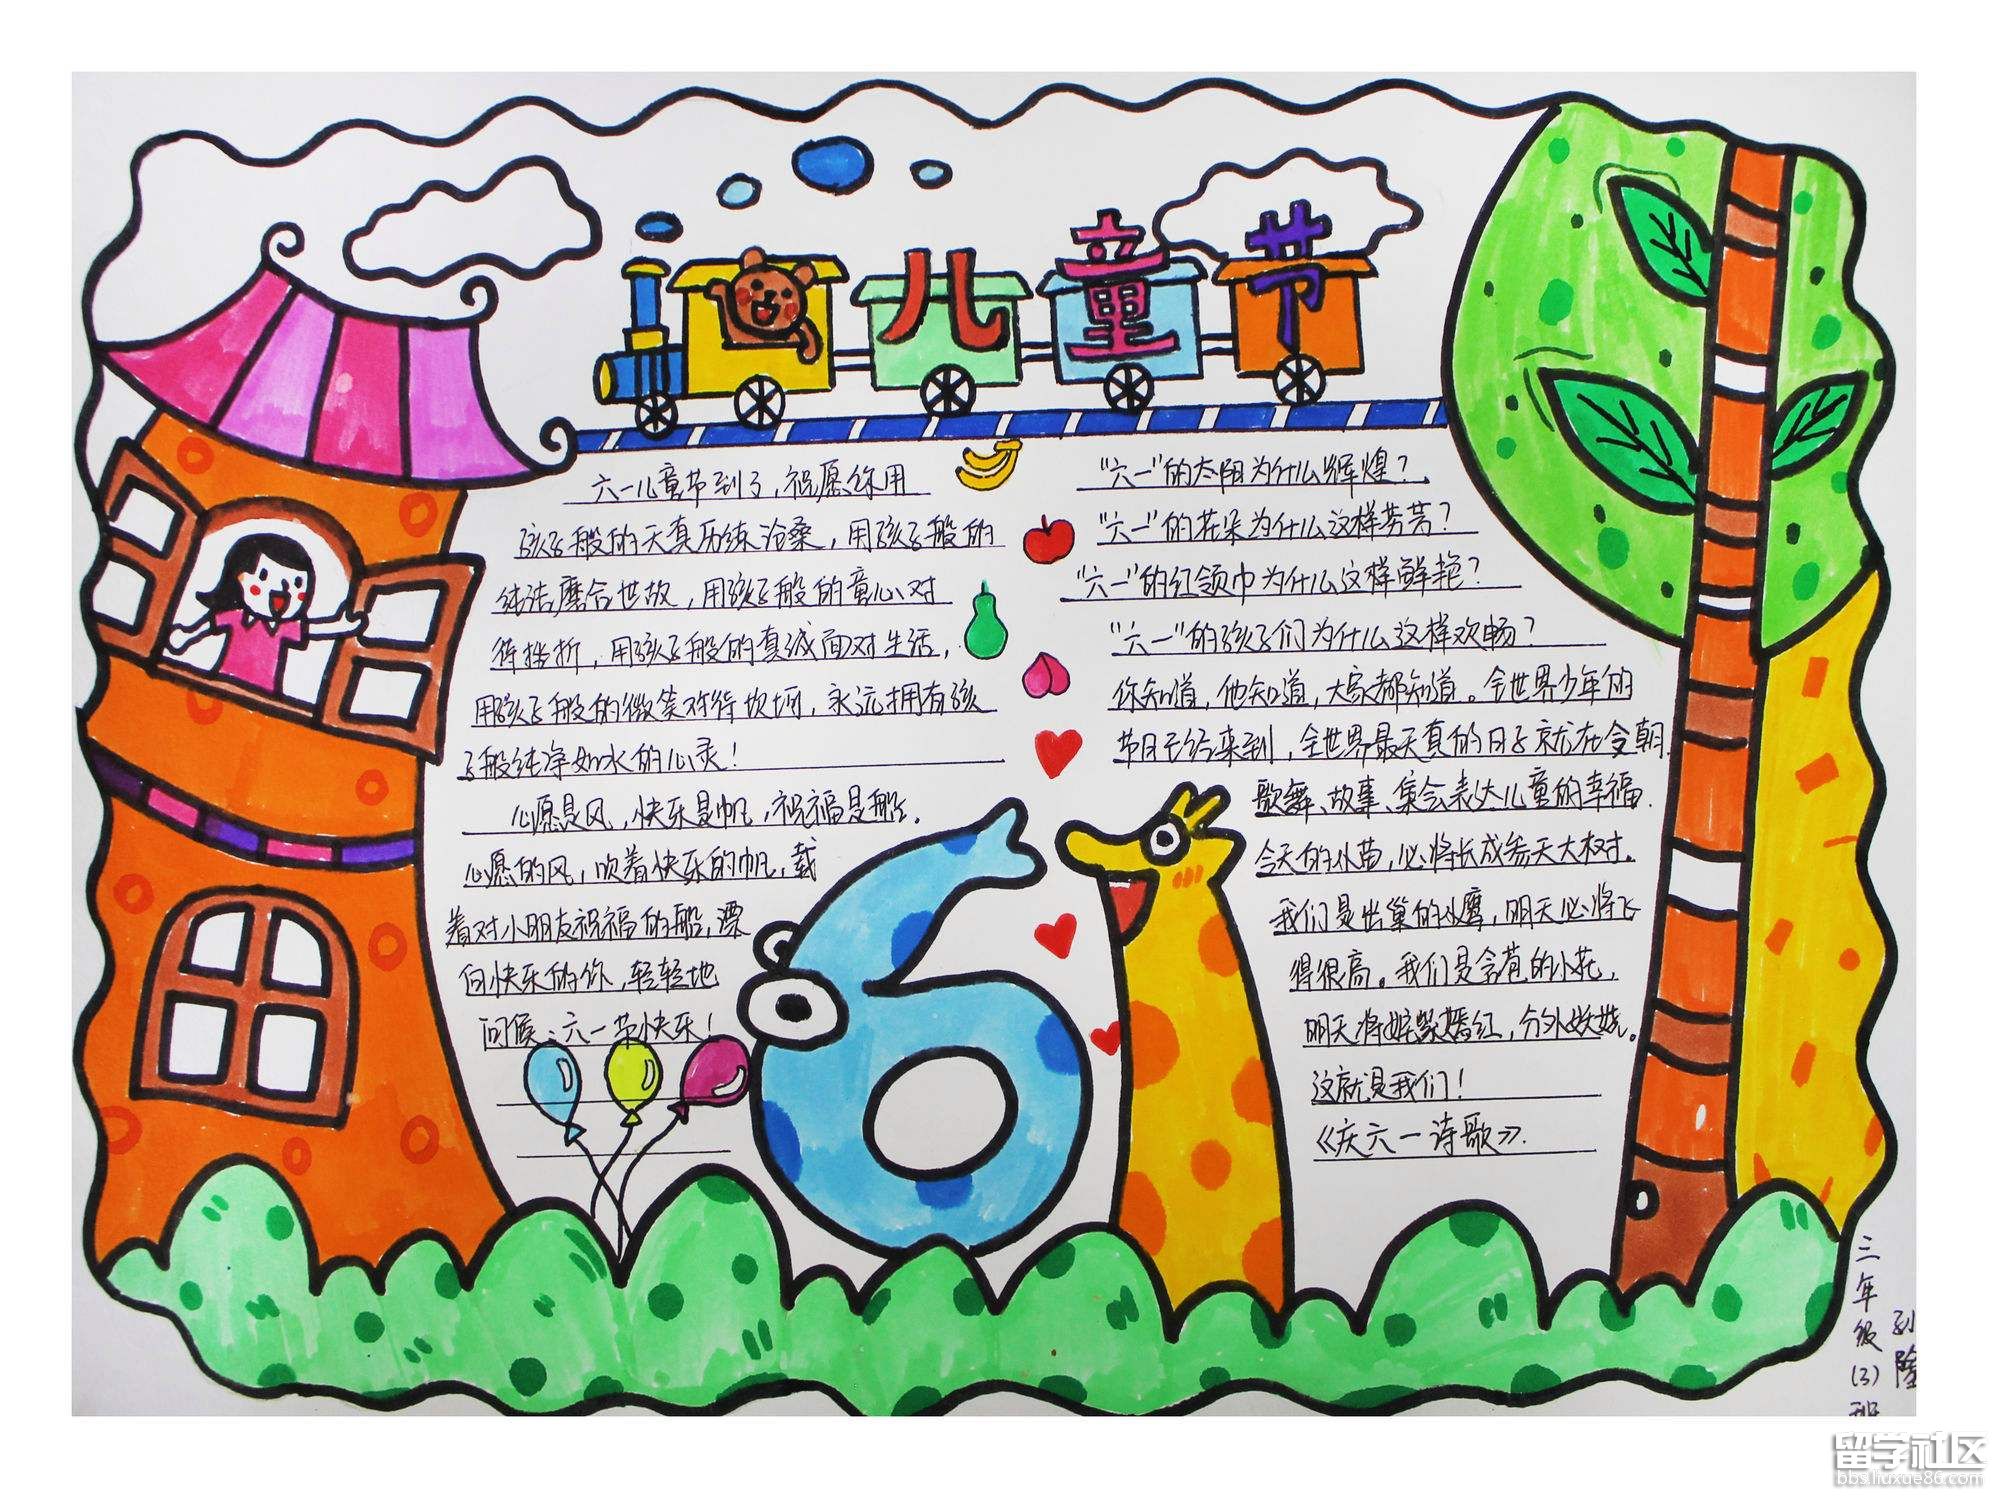 儿童节
六一儿童节到了，祝愿你用
孩子般的天真历练沧桑，用孩子般的
纯洁磨合世故，用孩子般的童心对
待挫折，用孩子般的真诚面对生活，
用孩子般的微笑对待坎坷，永远拥有孩
子般纯净如水的心灵！
心愿是风，快乐是帆，祝福是船。
心愿的风，吹着快乐的帆，载
着对小朋友祝福的船，漂
向快乐的你，轻轻地
问候：六一节快乐！
61
“六一”的太阳为什么辉煌？
“六一”的花朵为什么这样芬芳？
“六一”的红领巾为什么这样鲜艳？
“六一”的孩子们为什么这样欢畅？
你知道，他知道，大家都知道。全世界少年的
节日已经来到，全世界最天真的日子就在今朝.
歌舞、故事、集会表达儿童的幸福.
今天的小苗，必将长成参天大树。
我们是出巢的小鹰，明天必将飞
得很高。我们是含苞的小花，
明天将姹紫嫣红，分外妖娆。
这就是我们！
《庆六一诗歌》.
三年级(3)班
留学社区
bbs.liuxue86.com